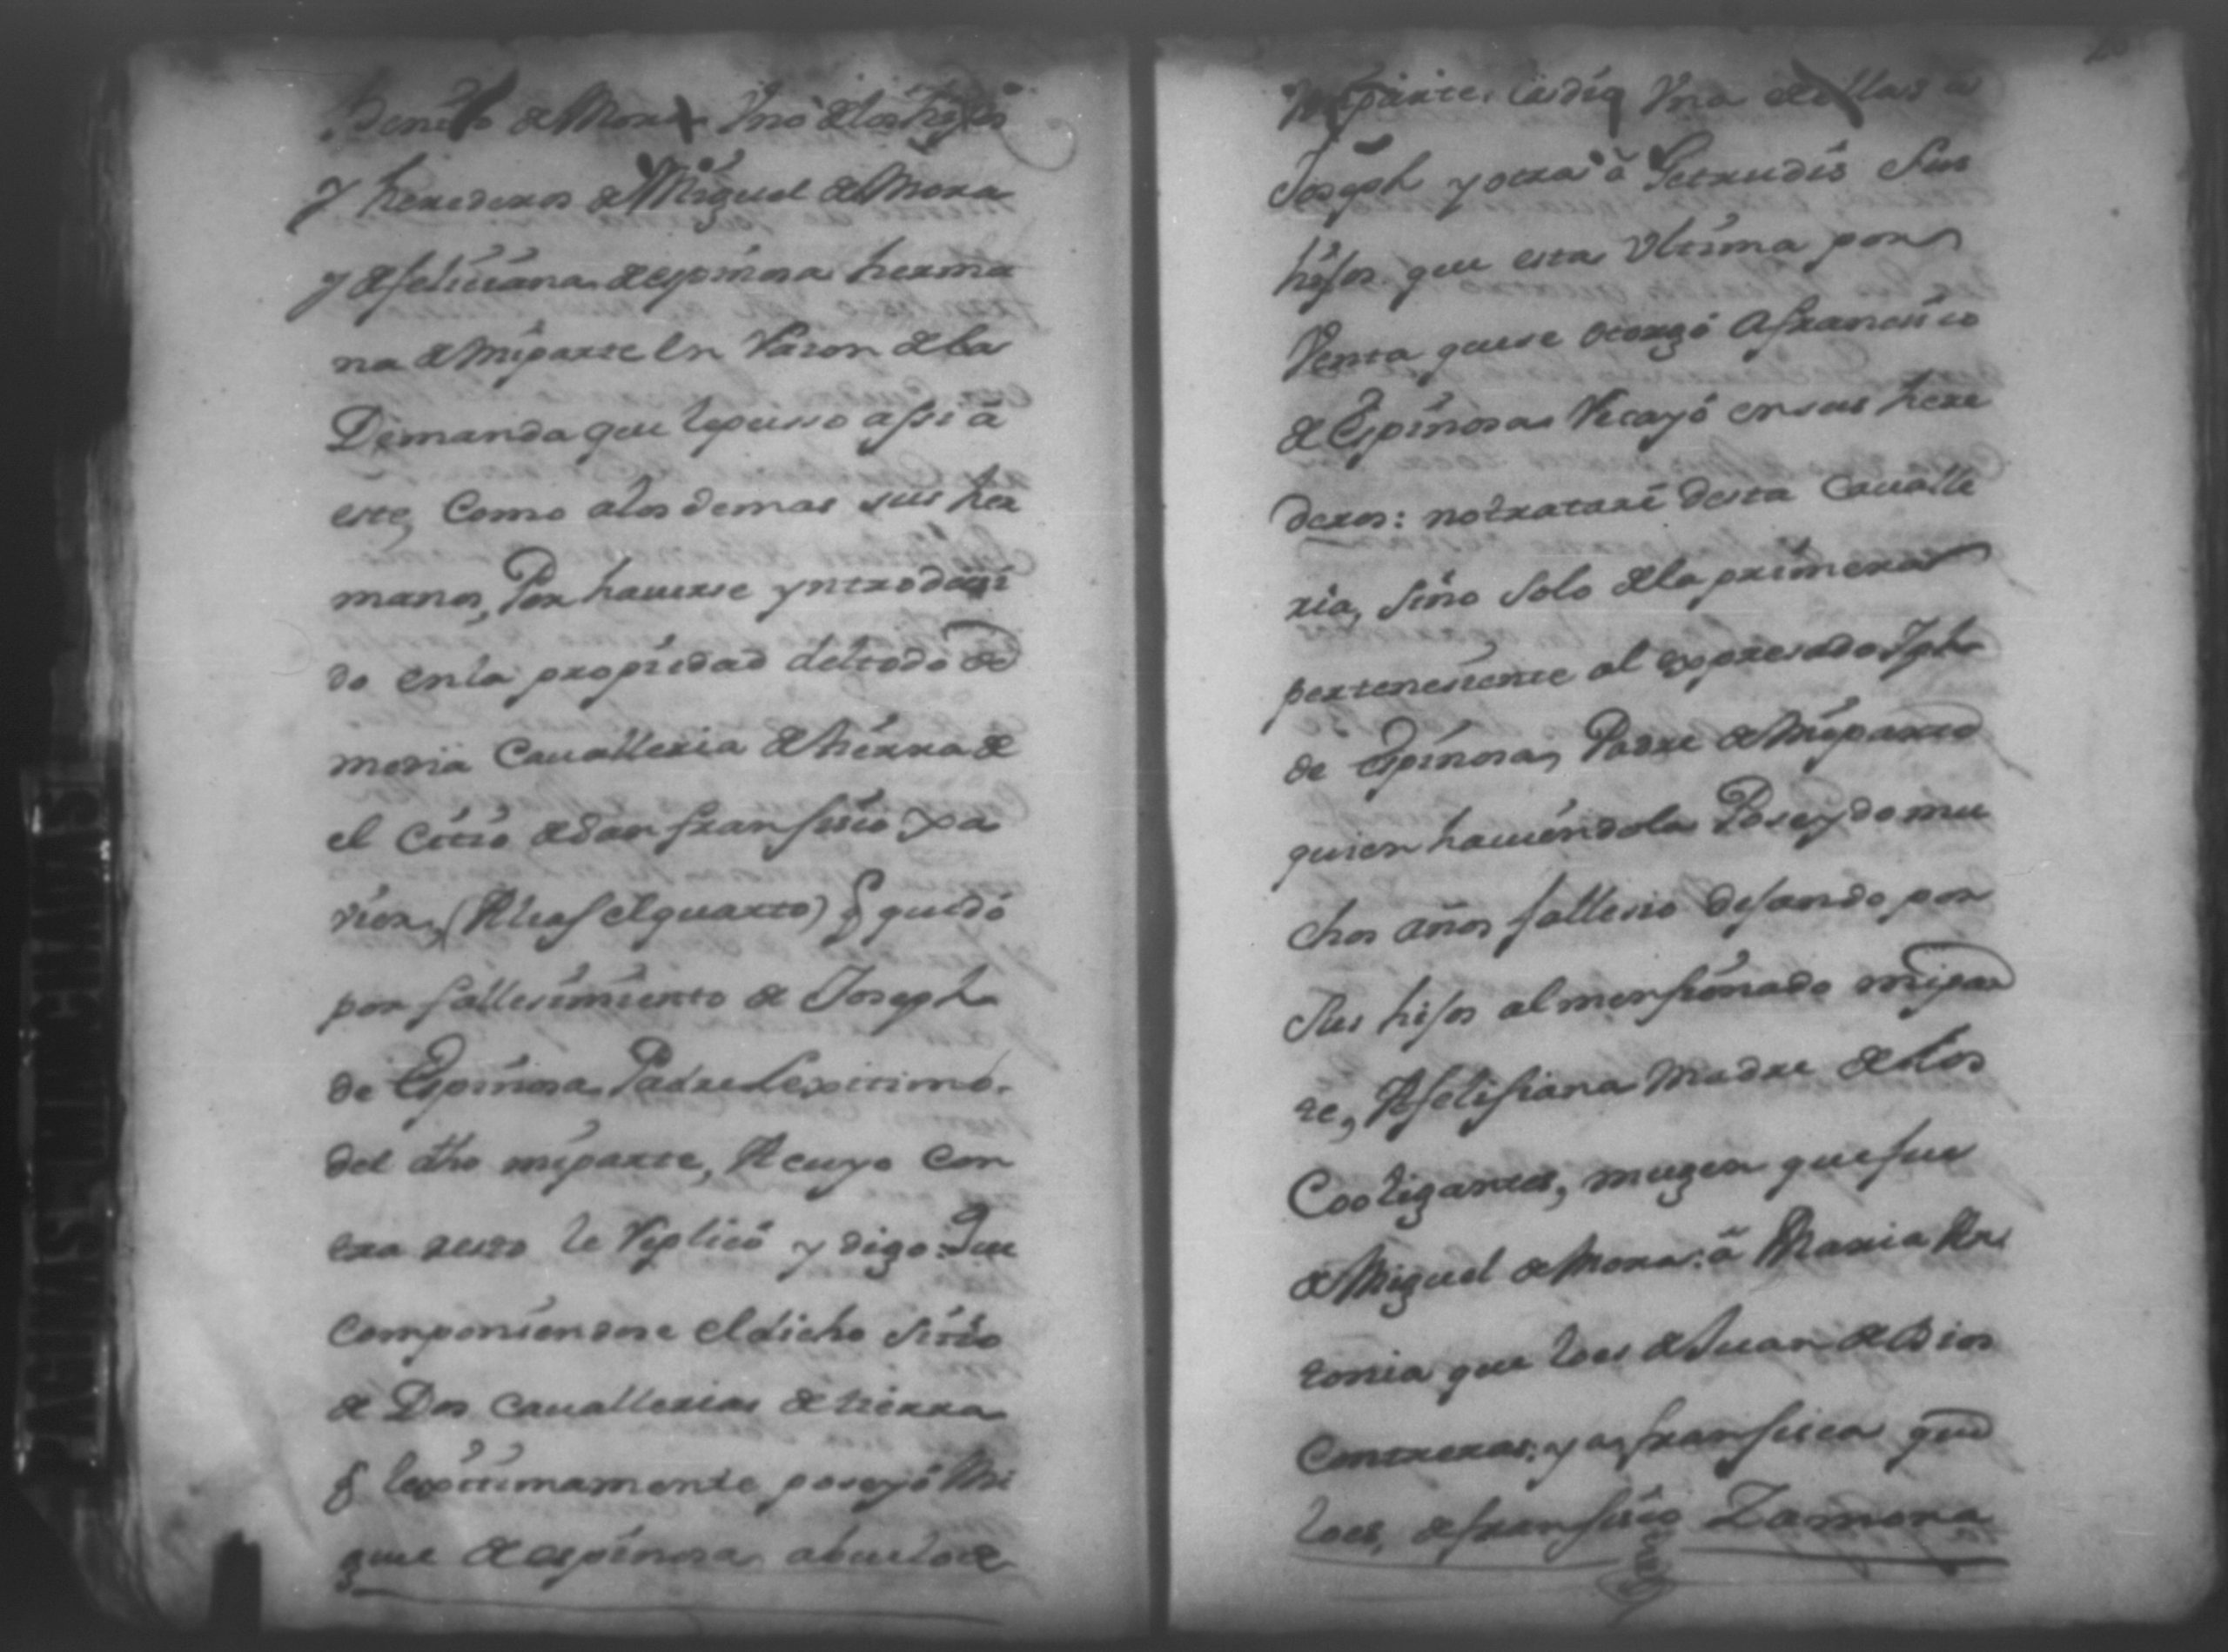 Benito de Mora Vno de los hijos
y herederos de Miguel de Mora
y de feliciana de espinosa herma
na de mi parte en Razon de la
Demanda que le puso assi â
este, Como a los demas sus her
manos, Por hauerse yntroduci
do en la propiedad del todo de
media Caualleria de tierra de
el Citio de San fransisco xa
vier, (Alias el quarto) q quedó
por fallesimiento de Joseph
de Espinosa Padre Lexitimo
del dho mi parte, A cuyo Con
texto le Replicó y digo: Que
Componiendose el dicho Sitio
de Dos cauallerias de tierra
q lexitimamente poseyó Mi
guel de espinosa abuelo de
mi parte, Cedió Vna de ellas a
Joseph y otra â Getrudis Sus
hijos que esta Vltima por
Venta que se otorgó a francisco
de Espinosa Recayó en sus here
deros: no trataré desta Caualle
ria, Sino Solo de la primera
perteneciente al expresado Jph
de Espinosa, Padre de mi parte
quien hauiendola Poseydo mu
chos años fallesio dejando por
Sus hijos al mensionado mi par
te, A felisiana Madre de los
Cooligantes, muger que fue
de Miguel de Mora: â Maria An
tonia que lo es de Juan de Dios
Contreras: y a fransisca que
lo es, de fransisco Zamora